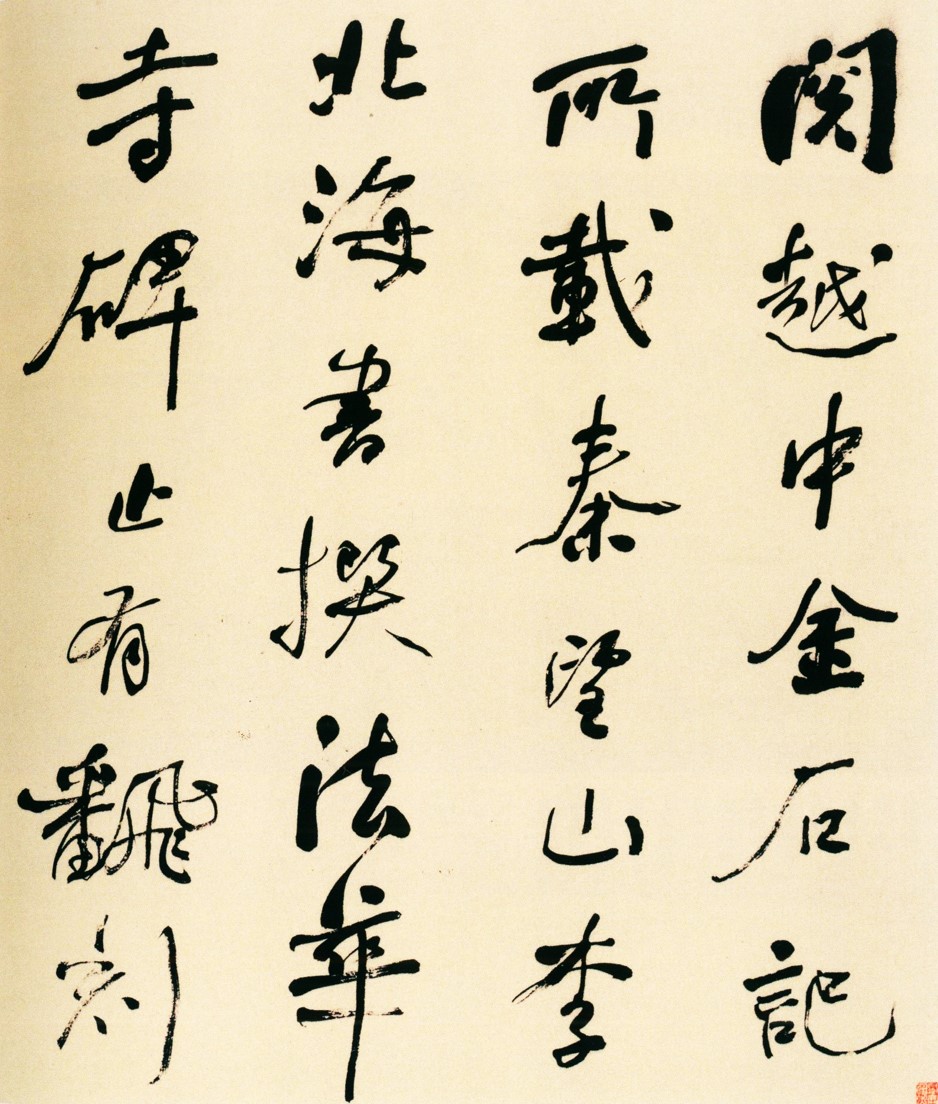 閱越中金石記
所載秦望山李
北海書撰法華
寺碑止有翻刻